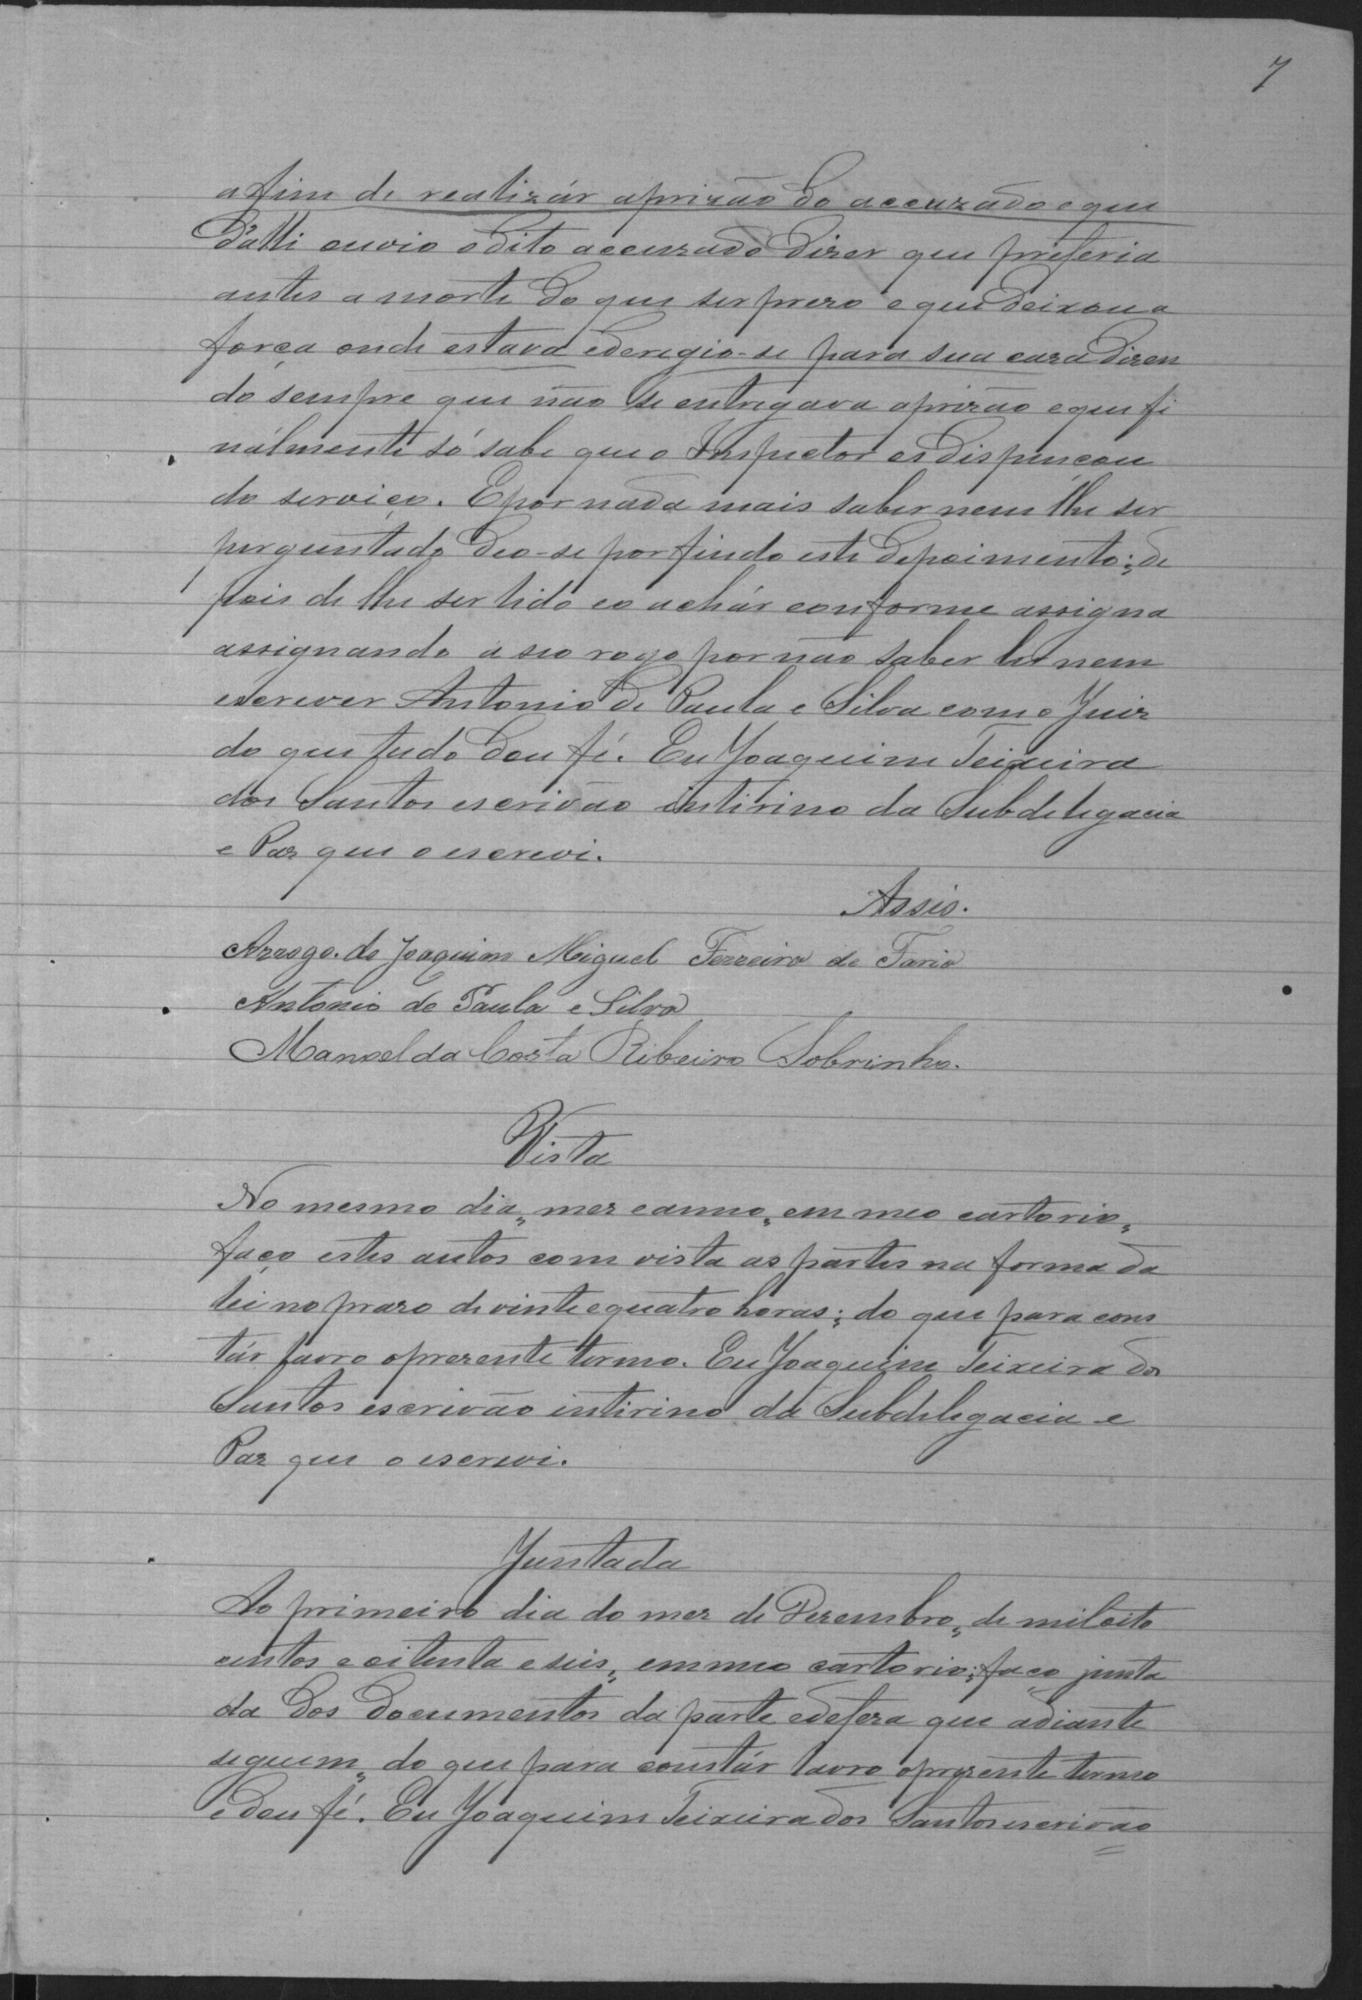 7
afim de realizár aprizão do accuzado e que
d'alli ouvio odito accuzado dizer que preferia
antes a morte do que ser prezo e que deixou a
força onde estava ederegio-se para sua caza dizen
do sempre que não se entregava aprizão e que fi
nálmente só sabe que o Inspector os dispençou
do serviço. E por nada mais saber nem lhe ser
perguntado deo-se por findo este depoimento; de
pois de lhe ser lido e o achár conforme assigna
assignando a seo rogo por não saber ler nem
escrever Antonio de Paula e Silva com o Juiz
do que tudo dou fé. Eu Joaquim Teixeira
dos Santos escrivão intirino da Subdelegacia
e Paz que o escrevi.
Assis.
Arrogo. de Joaquim Miguel Ferreira de Faria
Antonio de Paula e Silva
Manoel da Costa Ribeiro Sobrinho.
Vista
No mesmo dia, mez eanno, em meo cartorio,
faço estes autos com vista as partes na forma da
lei no prazo de vinte equatro horas; do que para cons
tár lavro oprezente termo. Eu Joaquim Teixeira dos
Santos escrivão intirino da Subdelegacia e
Paz que o escrevi.
Juntada
Ao primeiro dia do mez de Dezembro, de mil oito
centos e oitenta e seis, em meo cartorio; faço junta
da dos documentos da parte edefeza que adiante
seguem, do que para constár lavro oprezente termo
e dou fé. Eu Joaquim Teixeira dos Santos escrivão